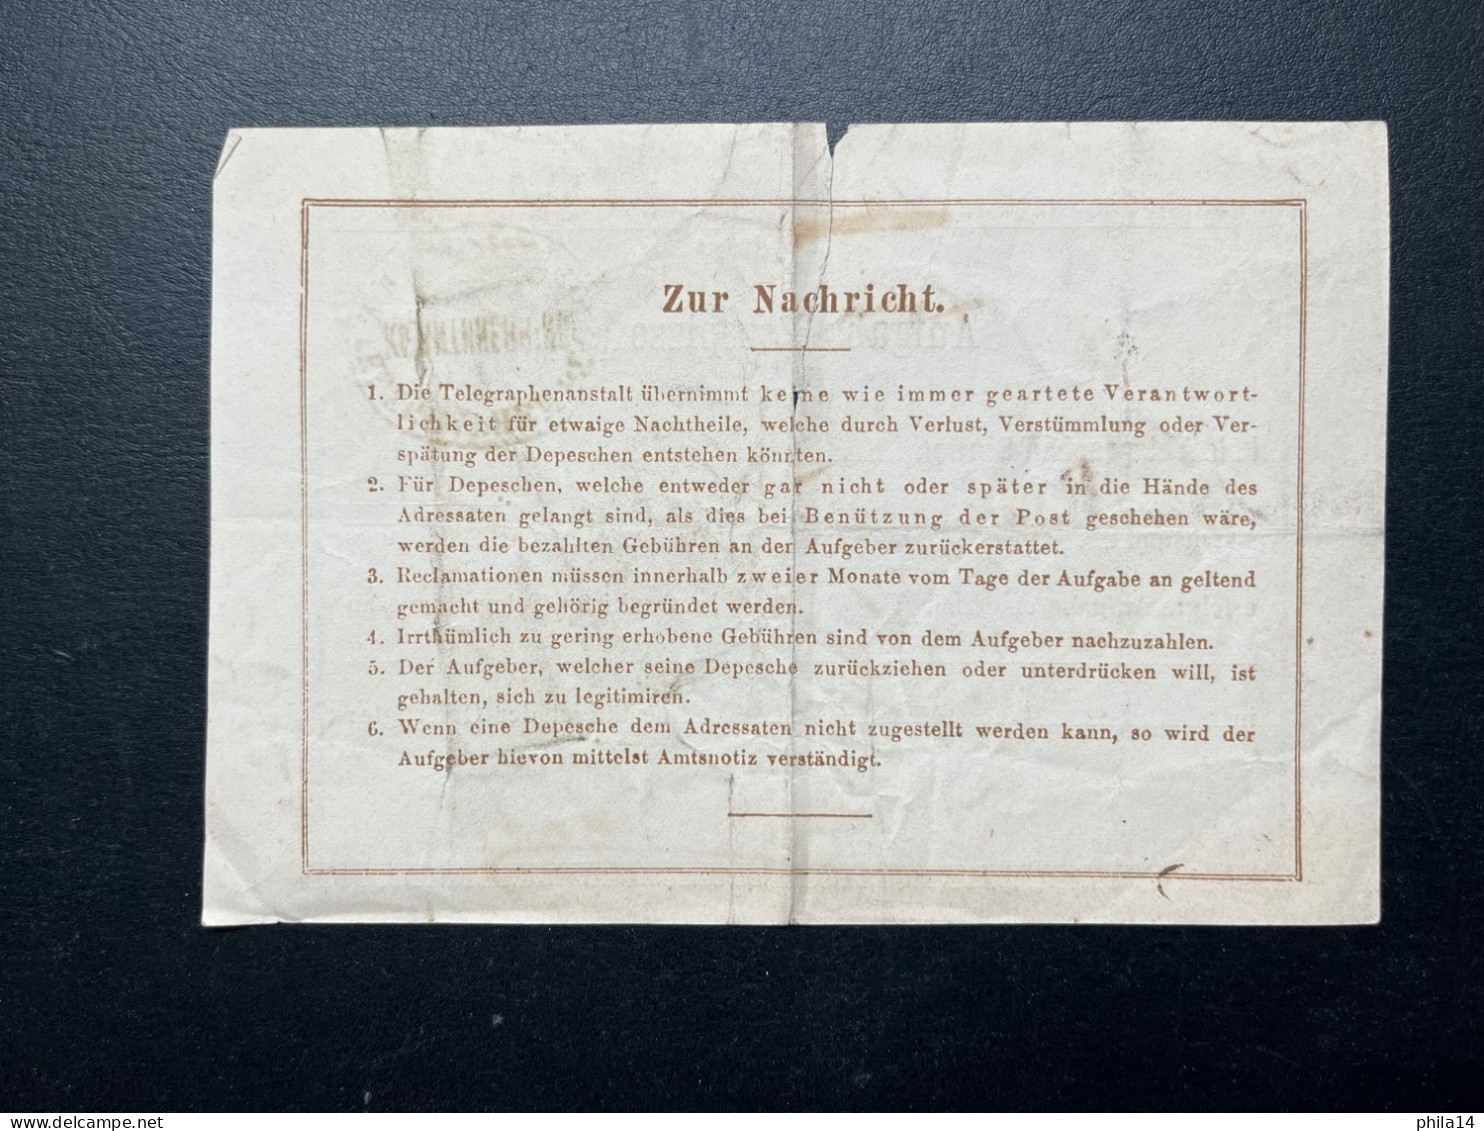 Zur Nachricht.
1. Die Telegraphenanstalt übernimmt keine wie immer geartete Verantwort-
lichkeit für etwaige Nachtheile, welche durch Verlust, Verstümmlung oder Ver-
spätung der Depeschen entstehen könnten.
2. Für Depeschen, welche entweder gar nicht oder später in die Hände des
Adressaten gelangt sind, als dies bei Benützung der Post geschehen wäre,
werden die bezahlten Gebühren an der Aufgeber zurückerstattet.
3. Reclamationen müssen innerhalb zweier Monate vom Tage der Aufgabe an geltend
gemacht und gehörig begründet werden.
4. Irrthümlich zu gering erhobene Gebühren sind von dem Aufgeber nachzuzahlen.
5. Der Aufgeber, welcher seine Depesche zurückziehen oder unterdrücken will, ist
gehalten, sich zu legitimiren.
6. Wenn eine Depesche dem Adressaten nicht zugestellt werden kann, so wird der
Aufgeber hievon mittelst Amtsnotiz verständigt.
delcampe.net
phila14